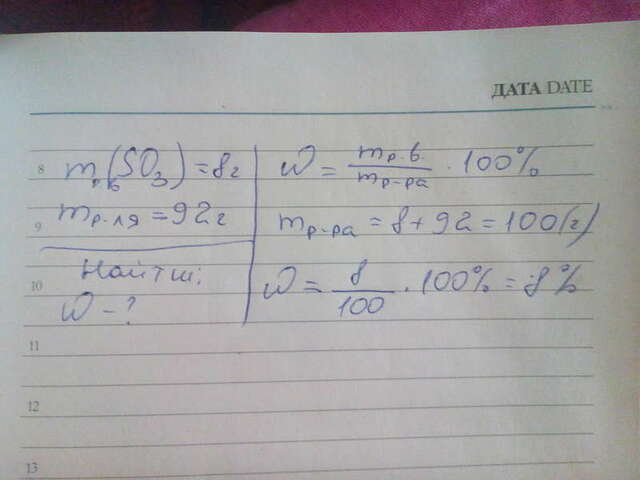 ДАТА DATE
8 m р.в (SO₃) = 8г
9 m р-ля = 92г
10 Найти:
ω - ?
ω = m р.в. / m р-ра · 100%
m р-ра = 8 + 92 = 100 (г)
ω = 8 / 100 · 100% = 8%
11
12
13